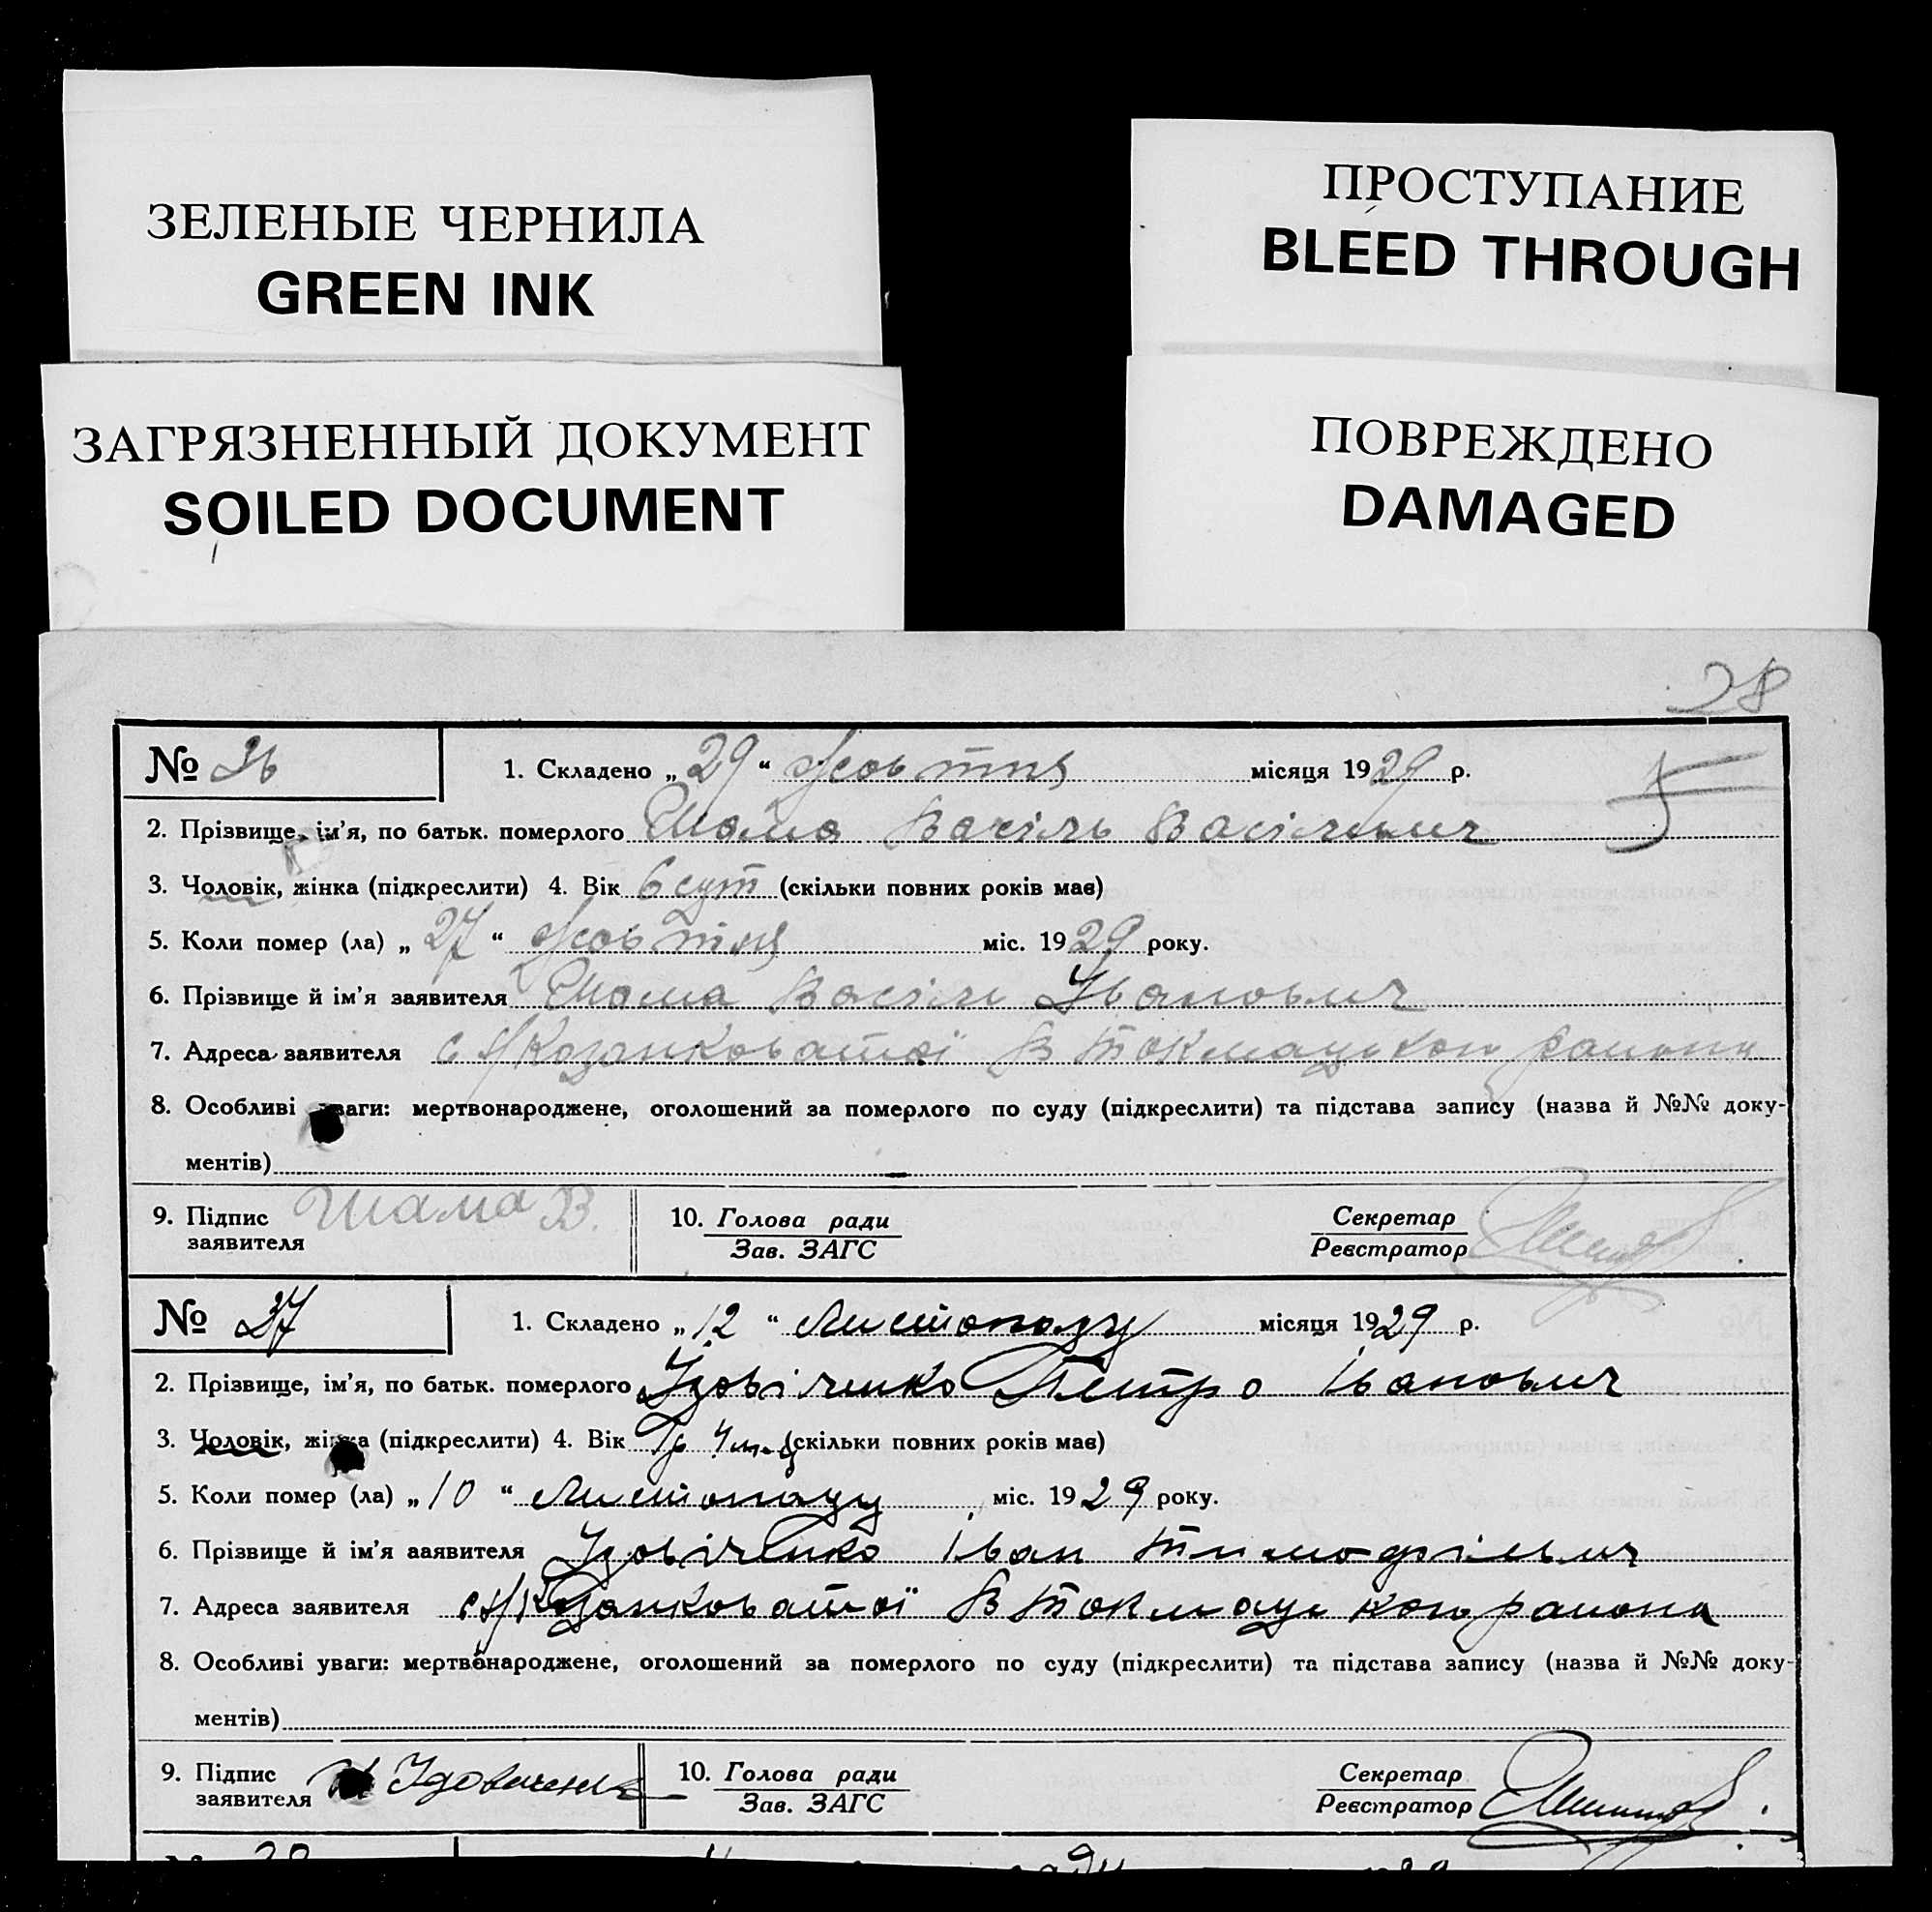 ЗЕЛЕНЫЕ ЧЕРНИЛА
GREEN INK
ПРОСТУПАНИЕ
BLEED THROUGH
ЗАГРЯЗНЕННЫЙ ДОКУМЕНТ
SOILED DOCUMENT
ПОВРЕЖДЕНО
DAMAGED
28
№ 36 1. Складено „ 29 “ Жовтня місяця 1929 р. 5
2. Прізвище, ім’я, по батьк. померлого Шама Васіль Васільович
3. Чоловік, жінка (підкреслити) 4. Вік 6 сут (скільки повних років має)
5. Коли помер (ла) „ 27 “ Жовтня міс. 1929 року.
6. Прізвище й ім’я заявителя Шама Василь Іванович
7. Адреса заявителя с Козанковатої В Токмацького району
8. Особливі уваги: мертвонароджене, оголошений за померлого по суду (підкреслити) та підстава запису (назва й №№ доку-
ментів)
9. Підпис заявителя Шама В. 10. Голова ради Зав. ЗАГС Секретар Реєстратор
№ 37 1. Складено „ 12 “ Листопаду місяця 1929 р.
2. Прізвище, ім’я, по батьк. померлого Удовіченко Петро Іванович
3. Чоловік, жінка (підкреслити) 4. Вік (скільки повних років має)
5. Коли помер (ла) „ 10 “ Листопаду міс. 1929 року.
6. Прізвище й ім’я ааявителя Удовіченко Іван Тимофійович
7. Адреса заявителя Козанковатої В Токмацького району
8. Особливі уваги: мертвонароджене, оголошений за померлого по суду (підкреслити) та підстава запису (назва й №№ доку-
ментів)
9. Підпис заявителя Удовиченко 10. Голова ради Зав. ЗАГС Секретар Реєстратор